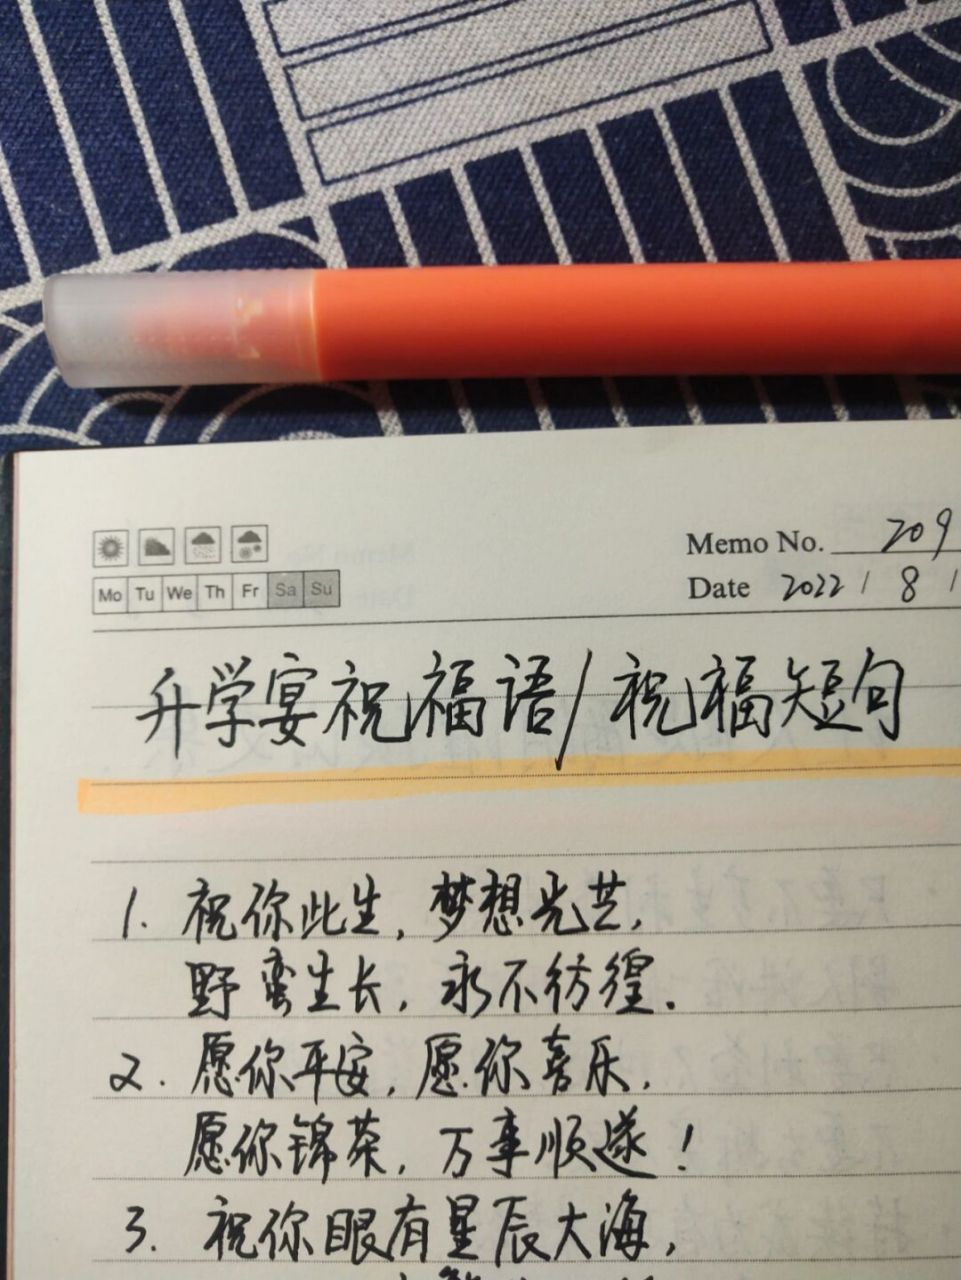 Memo No. 209
Mo Tu We Th Fr Sa Su
Date 2022 / 8 /
升学宴祝福语/祝福短句
1. 祝你此生,梦想光芒,
野蛮生长,永不彷徨.
2. 愿你平安,愿你喜乐,
愿你锦荣,万事顺遂!
3. 祝你眼有星辰大海,